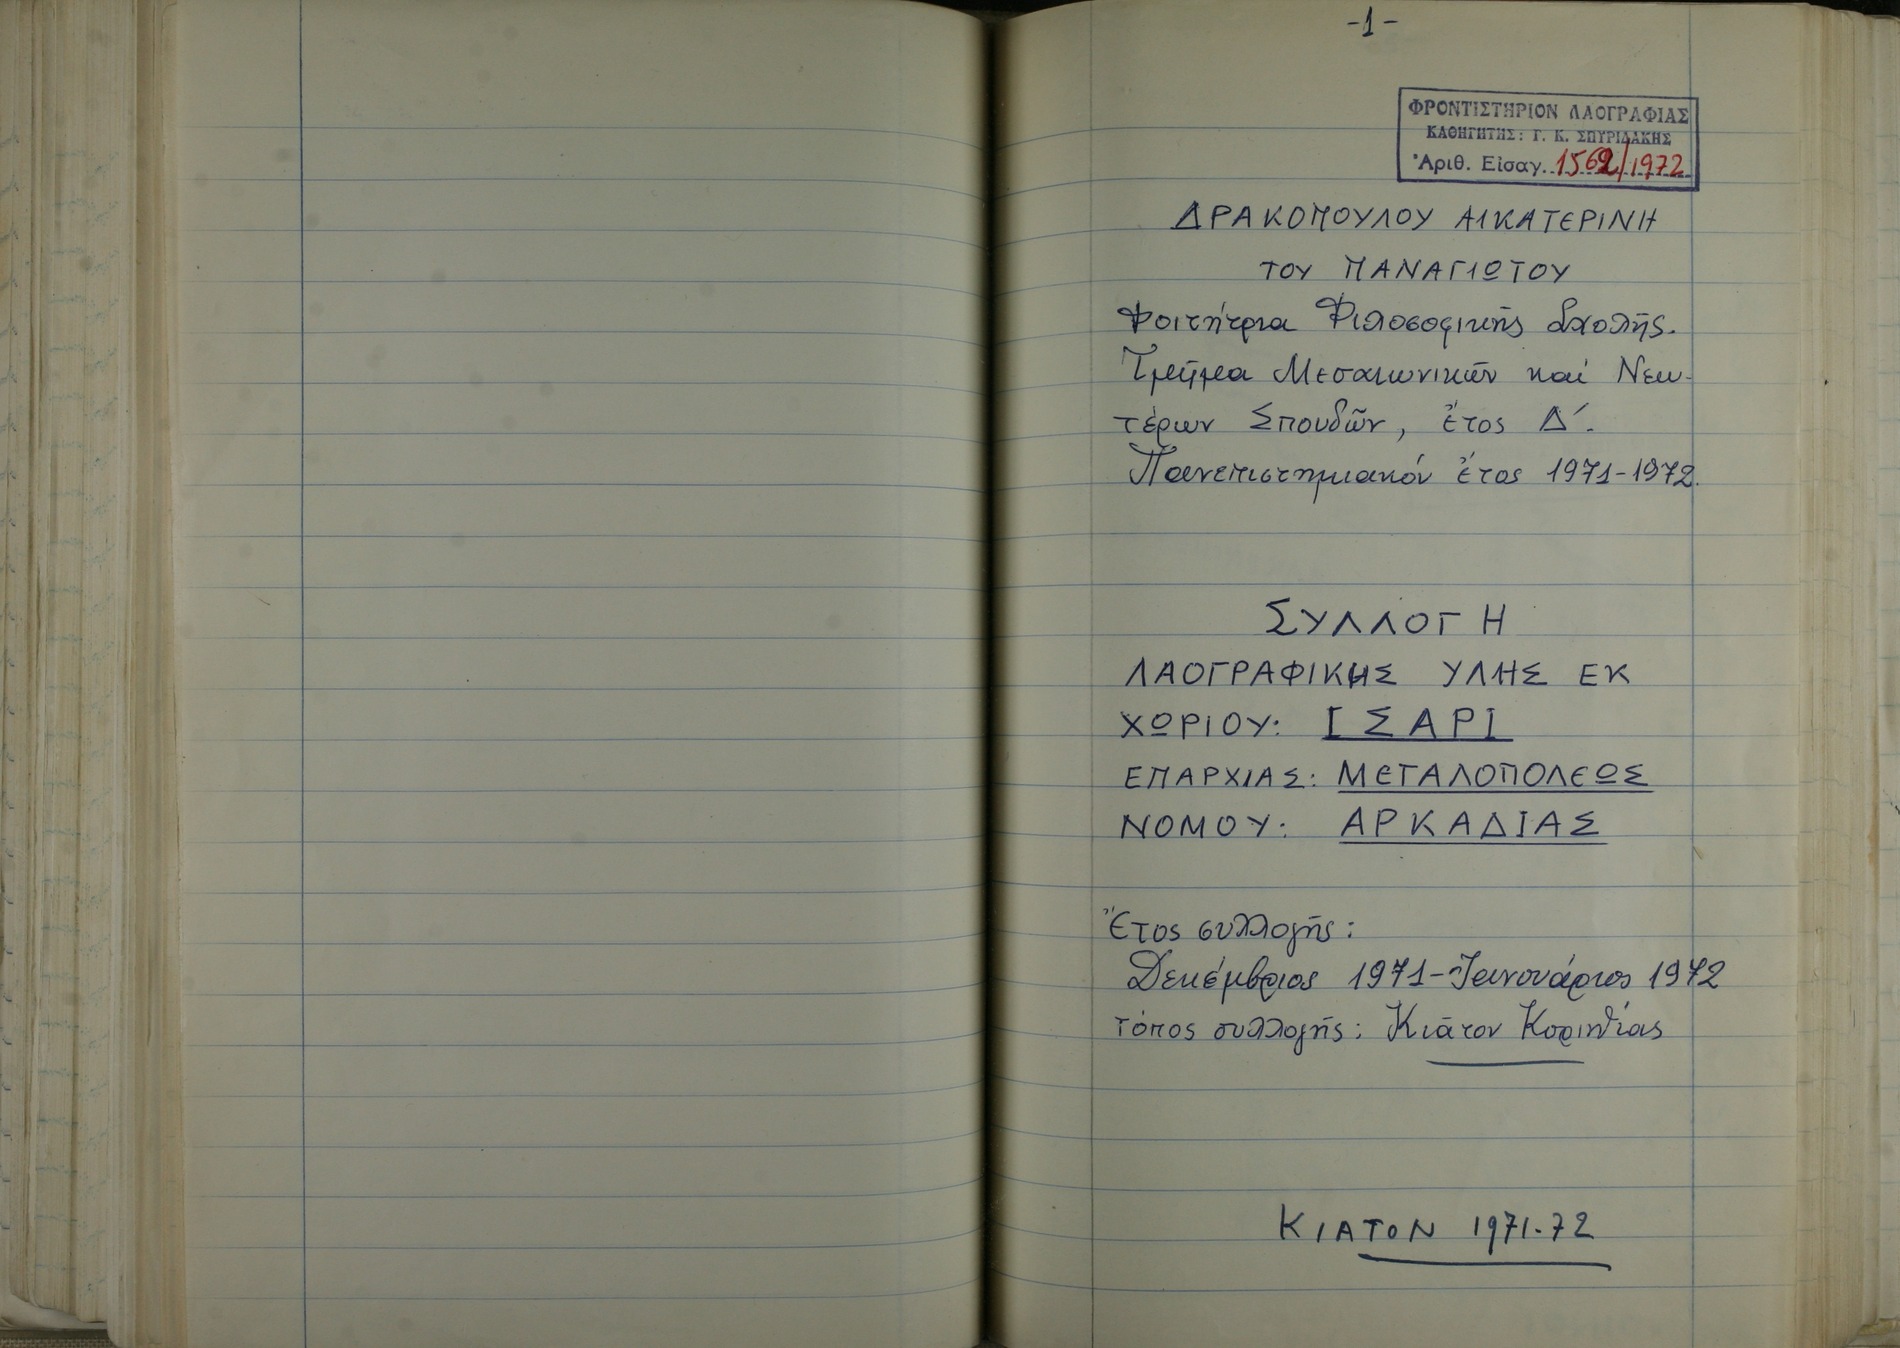 -1-
ΦΡΟΝΤΙΣΤΗΡΙΟΝ ΛΑΟΓΡΑΦΙΑΣ
ΚΑΘΗΓΗΤΗΣ: Γ. Κ. ΣΠΥΡΙΔΑΚΗΣ
Ἀριθ. Εἰσαγ. 1562/1972
ΔΡΑΚΟΠΟΥΛΟΥ ΑΙΚΑΤΕΡΙΝΗ
ΤΟΥ ΠΑΝΑΓΙΩΤΟΥ
Φοιτήτρια Φιλοσοφικῆς Σχολῆς.
Τμῆμα Μεσαιωνικῶν καί Νεω-
τέρων Σπουδῶν, ἔτος Δ΄.
Πανεπιστημιακόν ἔτος 1971-1972.
ΣΥΛΛΟΓΗ
ΛΑΟΓΡΑΦΙΚΗΣ ΥΛΗΣ ΕΚ
ΧΩΡΙΟΥ: ΙΣΑΡΙ
ΕΠΑΡΧΙΑΣ: ΜΕΓΑΛΟΠΟΛΕΩΣ
ΝΟΜΟΥ: ΑΡΚΑΔΙΑΣ
Ἔτος συλλογῆς:
Δεκέμβριος 1971-Ἰανουάριος 1972
τόπος συλλογῆς: Κιᾶτον Κορινθίας
ΚΙΑΤΟΝ 1971-72